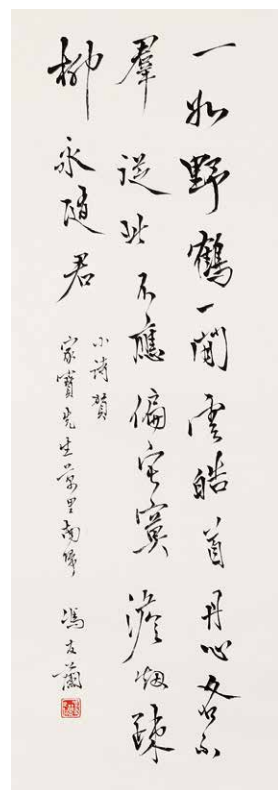 一如野鶴一閒雲皓首丹心各不
羣從此不應偏寂寞澹烟疎
柳永隨君
小詩贊
家寶先生萬里南歸 馮友蘭